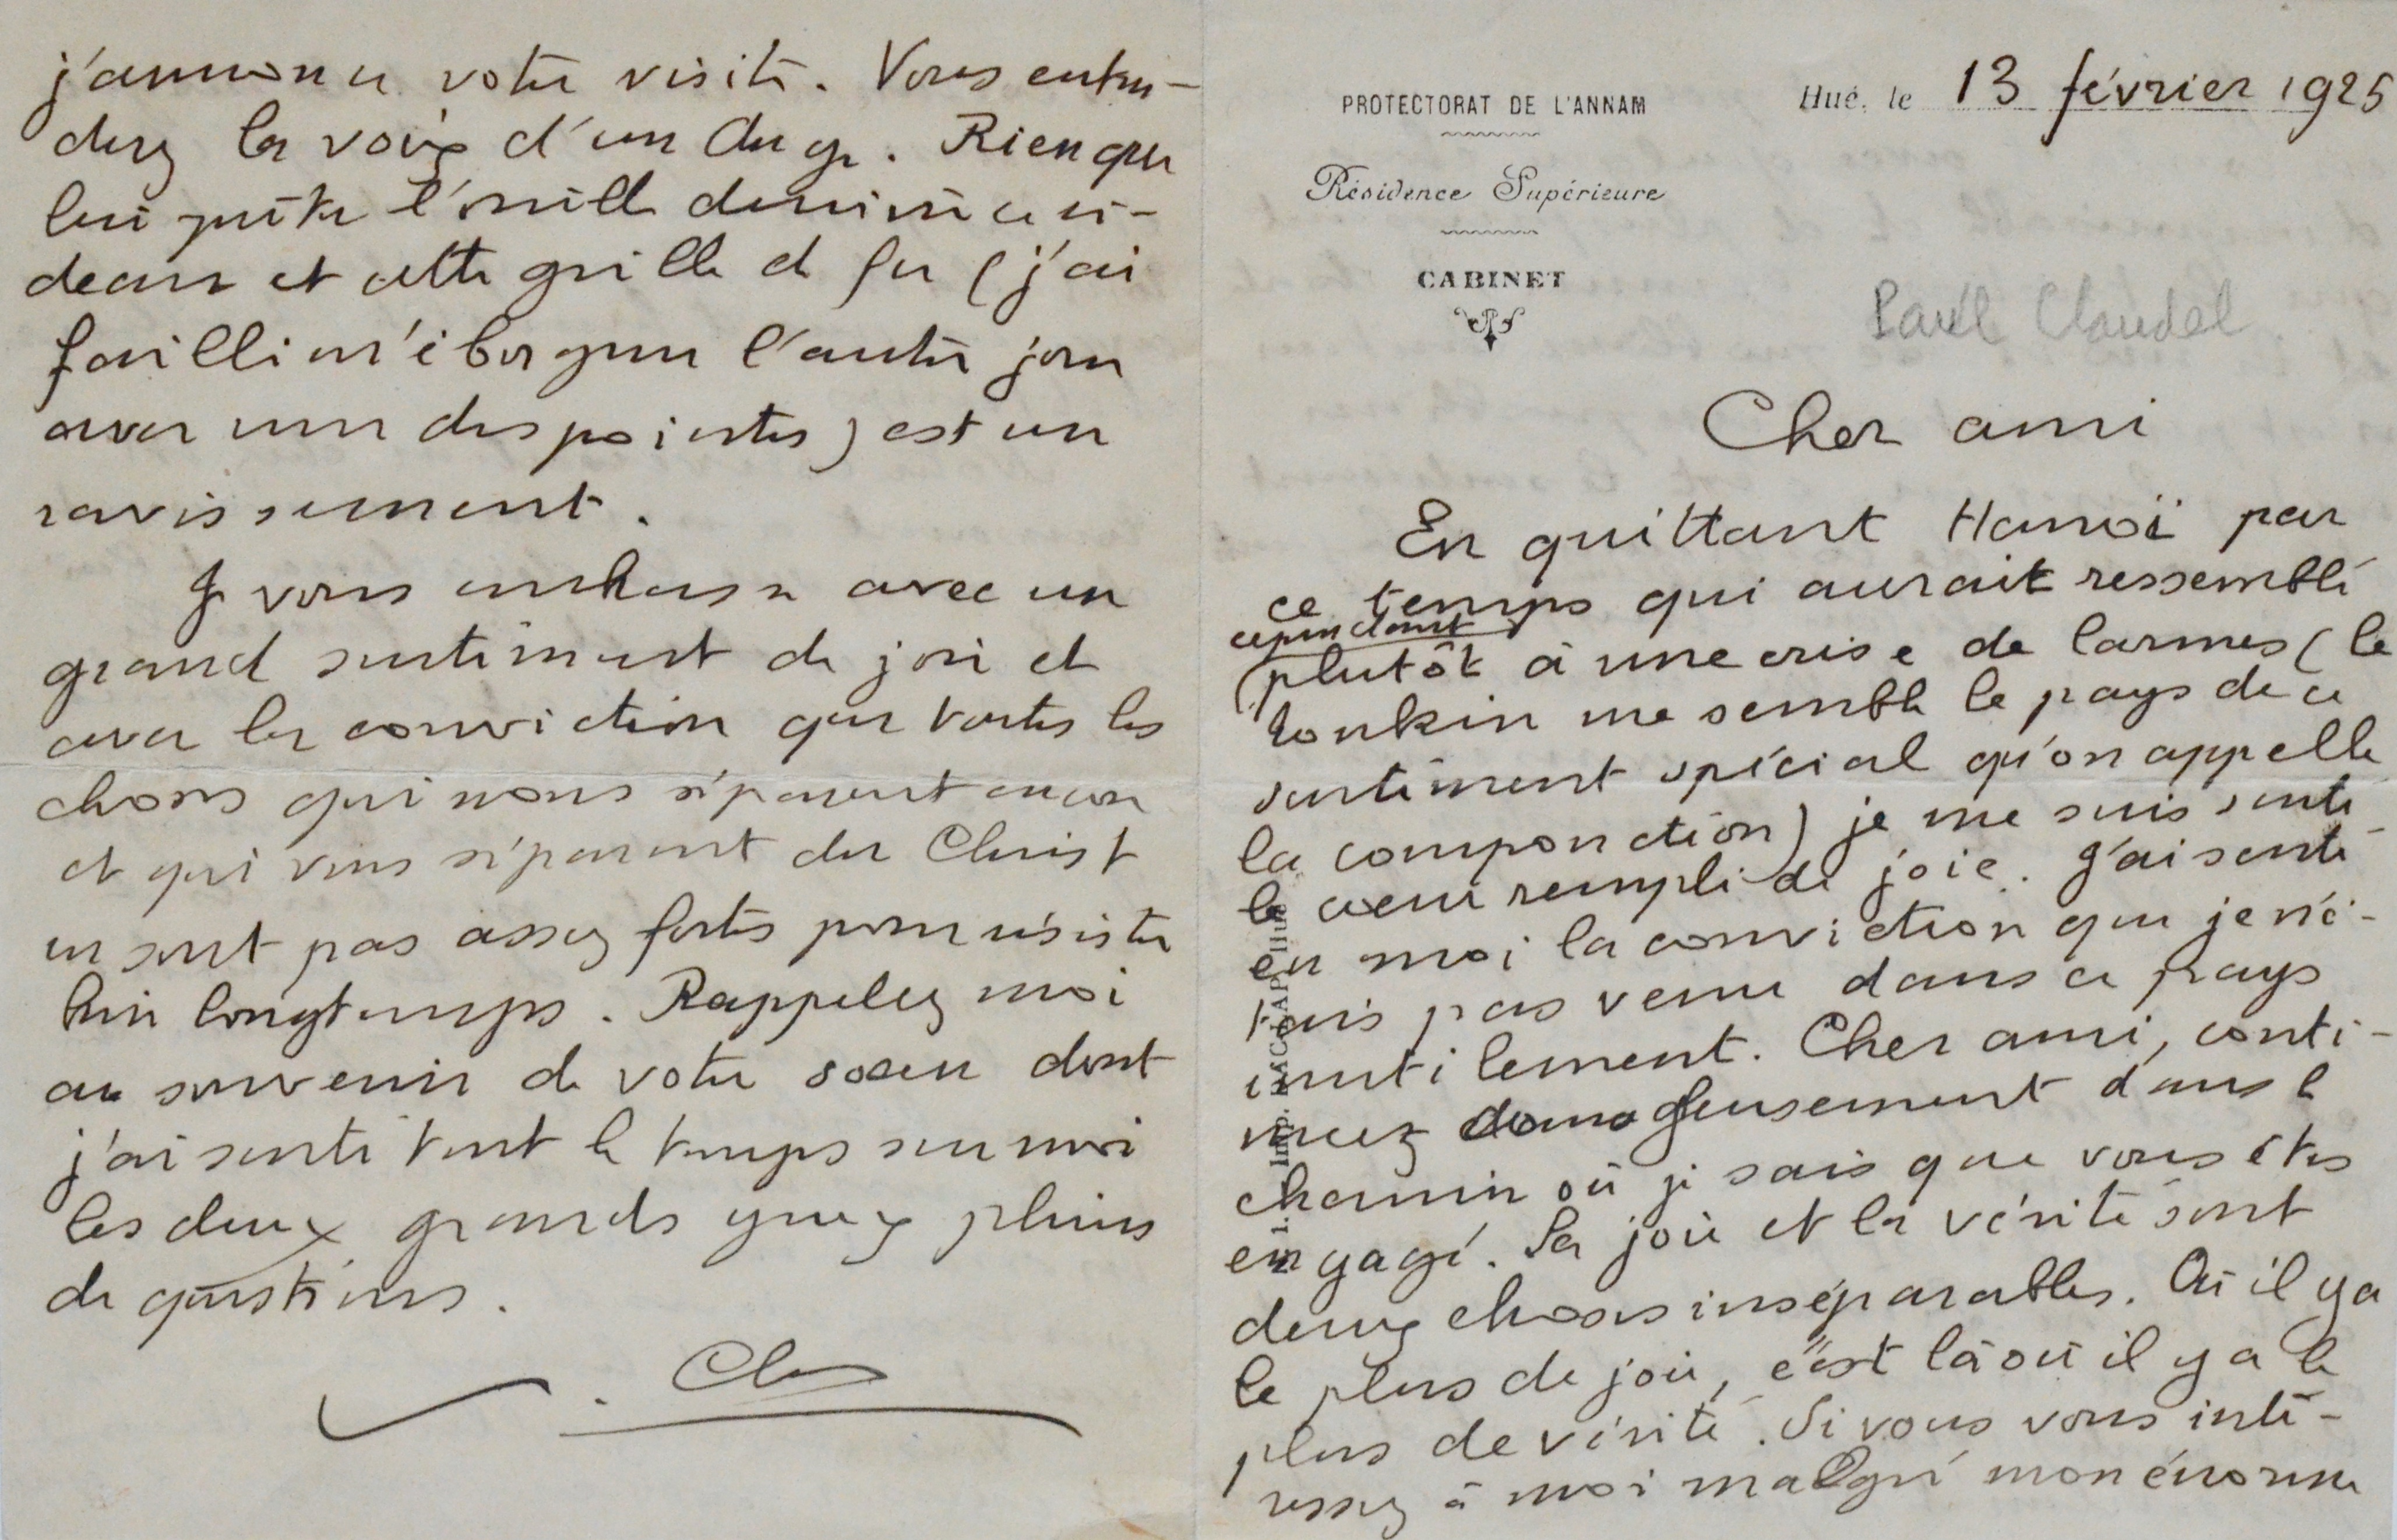 PROTECTORAT DE L'ANNAM
Résidence Supérieure
CABINET
Hué, le 13 février 1925
Paul Claudel
Cher ami
En quittant Hanoï par
ce temps qui aurait ressemblé
cependant
plutôt à une crise de larmes (le
tonkin me semble le pays de ce
sentiment spécial qu'on appelle
la componction) je me suis senti
le cœur rempli de joie. J'ai senti
en moi la conviction que je n'é-
tais pas venu dans ce pays
inutilement. Cher ami, conti-
nuez dans le
chemin où je sais que vous êtes
engagé. La joie et la vérité sont
deux choses inséparables. Où il y a
le plus de joie, c'est là où il y a le
plus de vérité. Si vous vous inté-
ressez à moi malgré mon énorme
j'annonce votre visite. Vous enten-
drez la voix d'un Ange. Rien que
lui prêter l'oreille derrière ce ri-
deau et cette grille de fer (j'ai
failli m'éborgner l'autre jour
avec une des pointes) est un
ravissement.
Je vous embrasse avec un
grand sentiment de joie et
avec la conviction que toutes les
choses qui nous séparent encore
et qui vous séparent du Christ
ne sont pas assez fortes pour résister
bien longtemps. Rappelez moi
au souvenir de votre sœur dont
j'ai senti tout le temps sur moi
les deux grands yeux pleins
de questions.